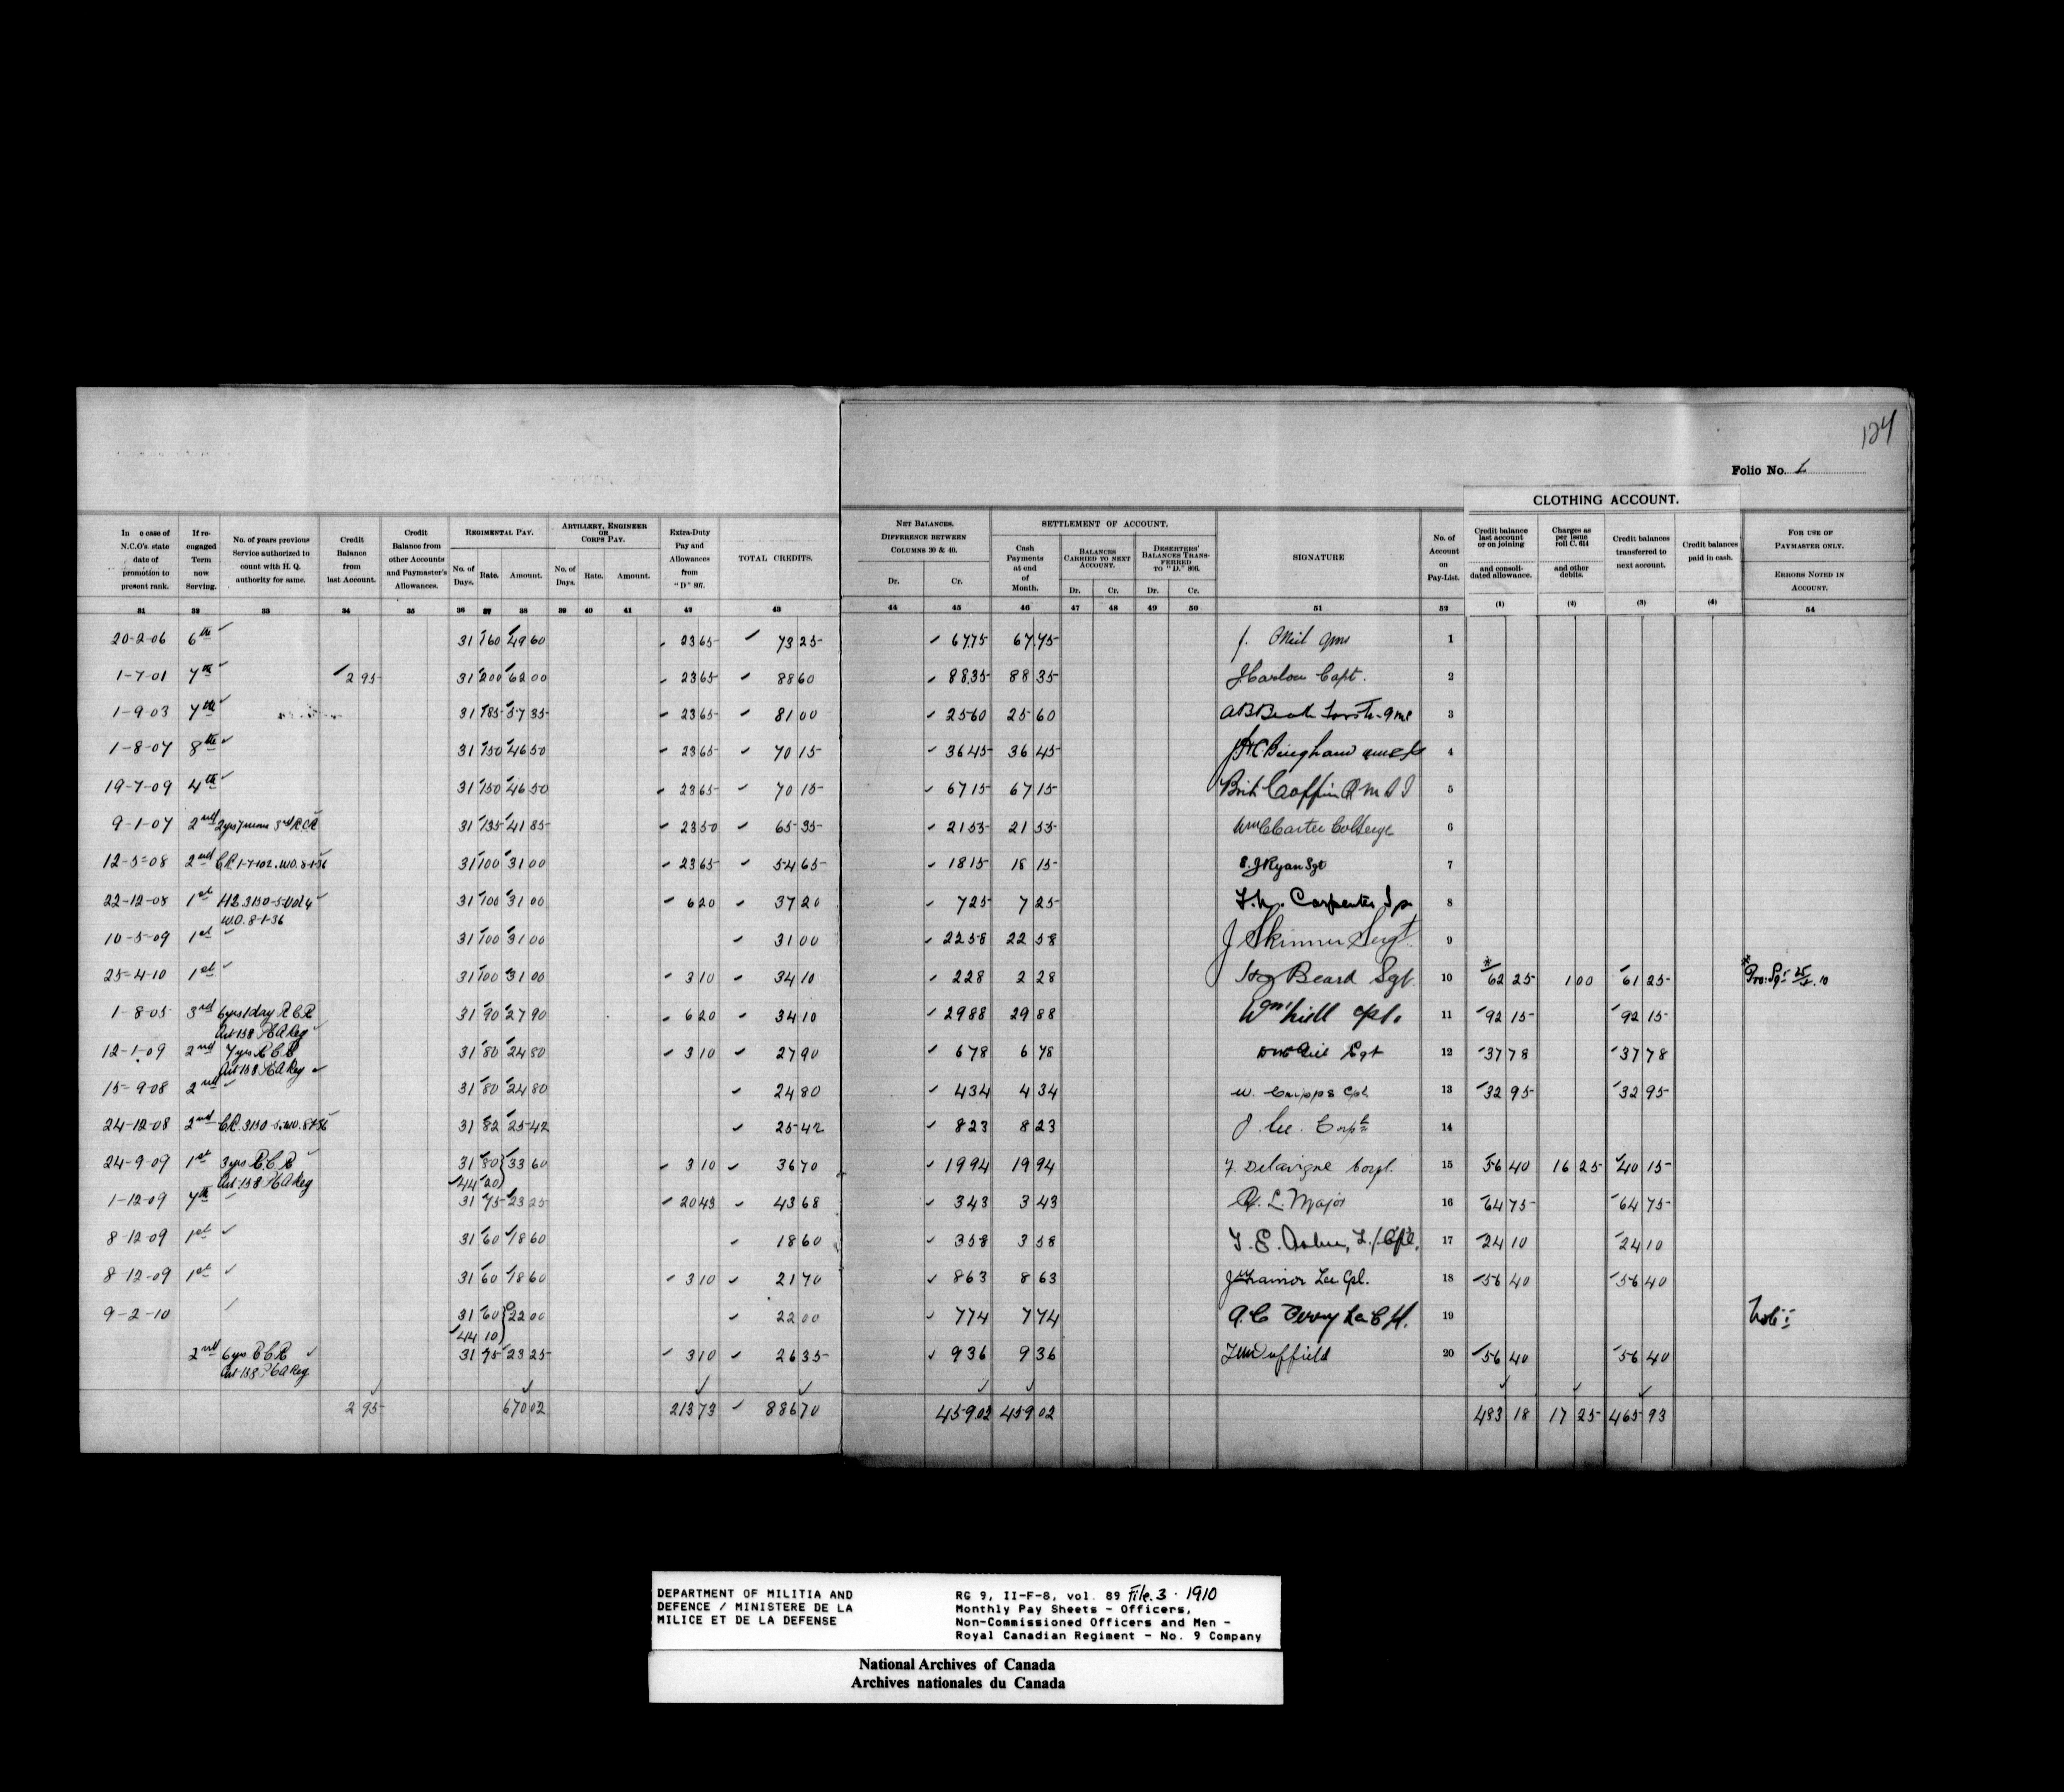 124
Folio No. 1
CLOTHING ACCOUNT.
In e case of N.C.O's. state date of promotion to present rank.
If re-engaged Term now Serving.
No. of years previous Service authorized to count with H. Q. authority for same.
Credit Balance from last Account.
Credit Balance from other Accounts and Paymaster's Allowances.
REGIMENTAL PAY.
No. of Days. Rate. Amount.
ARTILLERY, ENGINEER OR CORPS PAY.
No. of Days. Rate. Amount.
Extra-Duty Pay and Allowances from "D" 807.
TOTAL CREDITS.
NET BALANCES. DIFFERENCE BETWEEN COLUMNS 30 & 40.
Dr. Cr.
SETTLEMENT OF ACCOUNT.
Cash Payments at end of Month.
BALANCES CARRIED TO NEXT ACCOUNT.
Dr. Cr.
DESERTERS' BALANCES TRANSFERRED TO "D." 806.
Dr. Cr.
SIGNATURE
No. of Account on Pay-List.
Credit balance last account or on joining and consolidated allowance.
Charges as per issue roll C. 614 and other debits.
Credit balances transferred to next account.
Credit balances paid in cash.
FOR USE OF PAYMASTER ONLY.
ERRORS NOTED IN ACCOUNT.
31 32 33 34 35 36 37 38 39 40 41 42 43 44 45 46 47 48 49 50 51 52 (1) (2) (3) (4) 54
20-2-06 6th 31 1 60 49 60 23 65 73 25 67 75 67 75 J. Neil 1
1-7-01 7th 2 95 31 2 00 62 00 23 65 88 60 88 35 88 35 J. Carlow Capt. 2
1-9-03 7th 31 1 85 57 35 23 65 81 00 25 60 25 60 3
1-8-07 8th 31 1 50 46 50 23 65 70 15 36 45 36 45 Bingham 4
19-7-09 4th 31 1 50 46 50 23 65 70 15 67 15 67 15 Coffin 5
9-1-07 2nd 31 1 35 41 85 23 50 65 35 21 53 21 53 Wm C Carter Col Sergt 6
12-5-08 2nd 31 1 00 31 00 23 65 54 65 18 15 18 15 S. J Ryan Sgt 7
22-12-08 1st 31 1 00 31 00 6 20 37 20 7 25 7 25 Carpenter 8
W.O. 8-1-36
10-5-09 1st 31 1 00 31 00 31 00 22 58 22 58 J Skinner Sergt. 9
25-4-10 1st 31 1 00 31 00 3 10 34 10 2 28 2 28 Beard Sgt. 10 * 62 25 1 00 61 25
1-8-05 3rd 6yrs 1 day R C R 31 90 27 90 6 20 34 10 29 88 29 88 11 92 15 92 15
Art 138 P&A Reg
12-1-09 2nd 7 yrs R C R 31 80 24 80 3 10 27 90 6 78 6 78 12 37 78 37 78
Art 138 P&A Reg
15-9-08 2nd 31 80 24 80 24 80 4 34 4 34 W. Cripps Cpl. 13 32 95 32 95
24-12-08 2nd 31 82 25 42 25 42 8 23 8 23 J. Lee. Corpl 14
24-9-09 1st 3yrs R.C.R 31 80 33 60 3 10 36 70 19 94 19 94 F. Delavigne Corpl. 15 56 40 16 25 40 15
Art 138 P&A Reg 44 20
1-12-09 7th 31 75 23 25 20 43 43 68 3 43 3 43 L. Major 16 64 75 64 75
8-12-09 1st 31 60 18 60 18 60 3 58 3 58 17 24 10 24 10
8-12-09 1st 31 60 18 60 3 10 21 70 8 63 8 63 18 56 40 56 40
9-2-10 31 60 22 00 22 00 7 74 7 74 19
44 10
2nd 6yrs R C R 31 75 23 25 3 10 26 35 9 36 9 36 Duffield 20 56 40 56 40
Art 138 P&A Reg
2 95 670 02 213 73 886 70 459 02 459 02 483 18 17 25 465 93
DEPARTMENT OF MILITIA AND
DEFENCE / MINISTERE DE LA
MILICE ET DE LA DEFENSE
RG 9, II-F-8, vol. 89 File. 3 . 1910
Monthly Pay Sheets - Officers,
Non-Commissioned Officers and Men -
Royal Canadian Regiment - No. 9 Company
National Archives of Canada
Archives nationales du Canada